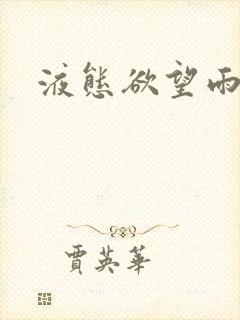 液態欲望雨
賈英華